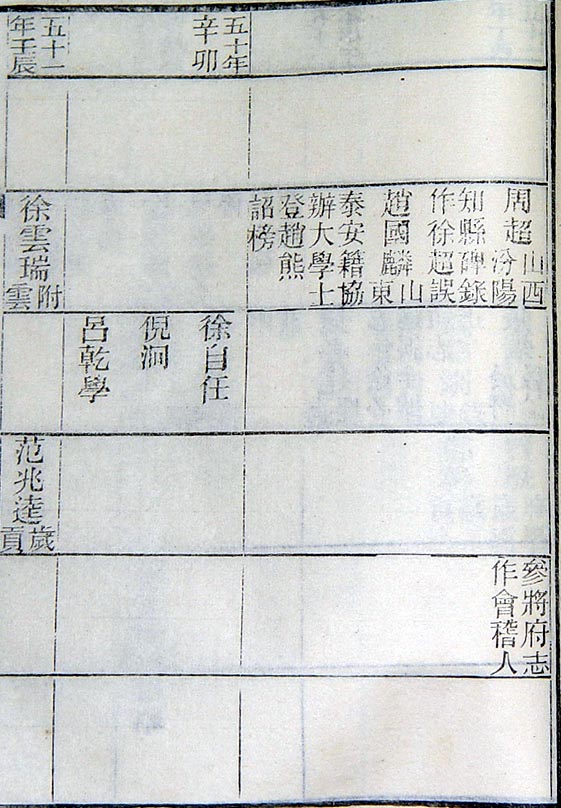 五十年
辛卯
五十一
年壬辰
周超山西
汾陽
知縣碑錄
作徐超誤
趙國麟山
東
泰安籍協
辦大學士
登趙熊
詔榜
徐雲瑞附
雲
徐自任
倪泂
呂乾學
范兆達歲
貢
參將府志
作會稽人